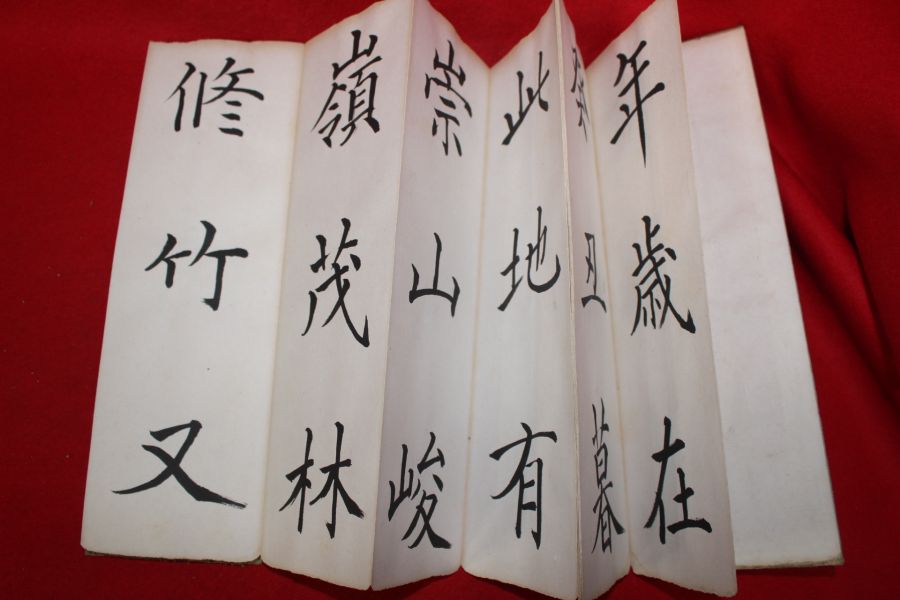 年歳在
癸丑暮
此地有
崇山峻
嶺茂林
修竹又